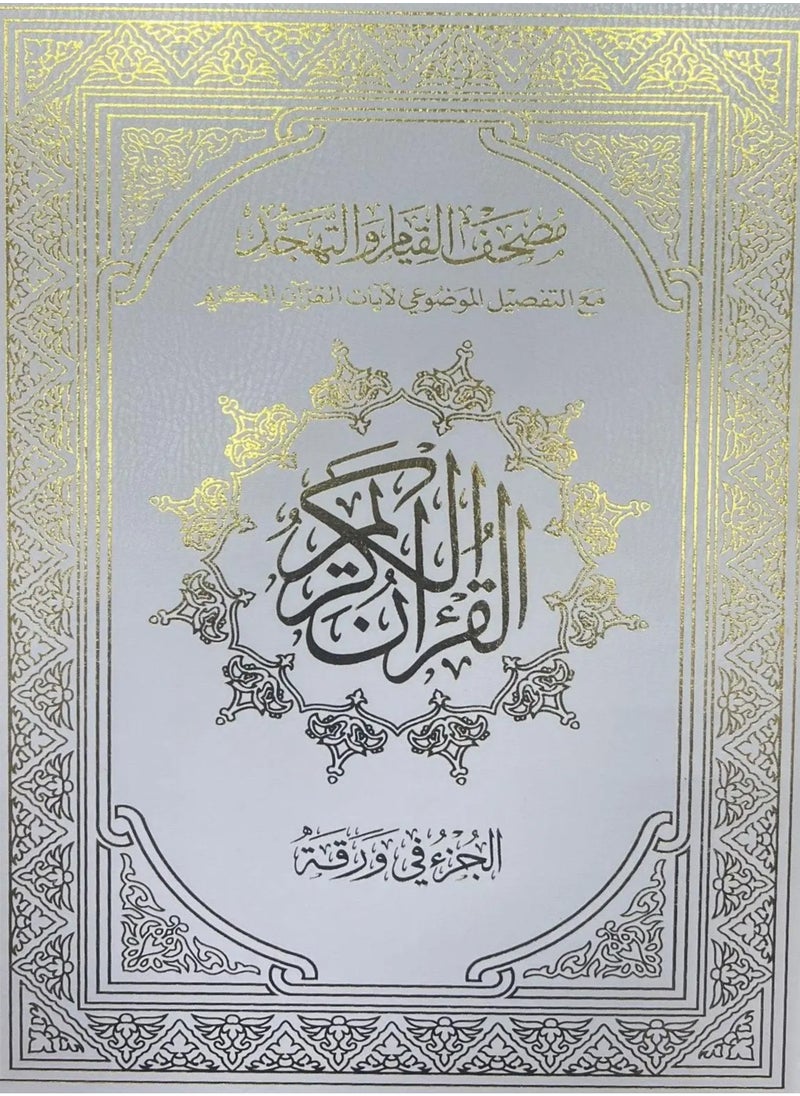 مُصْحَفُ الْقِيَامِ وَالتَّهَجُّدِ
مَعَ التفصيل الموَضُوعي لآيات القرآن الكريم
القُرْءَانُ الكَرِيمُ
الجُزْءُ فِي وَرَقَةْ